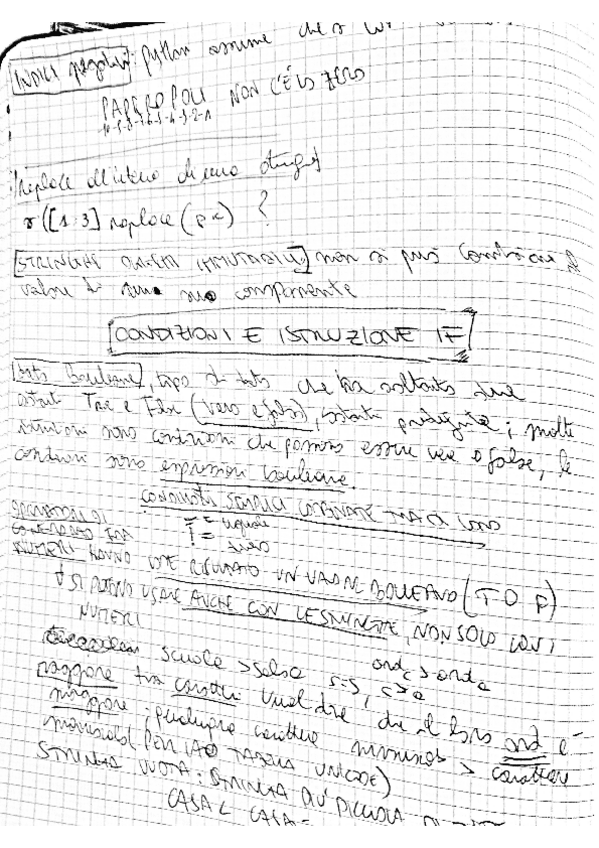 INDICI negativi: python assume che s
PAPEROPOLI NON C'È LO ZERO
-10-9-8-7-6-5-4-3-2-1
Replace all'interno di una stringa
s([1:3] replace (px) ?
[STRINGHE OGGETTI IMMUTABILI] non si può cambiare il
valore di una sua componente
CONDIZIONI E ISTRUZIONE IF
Dato booleano, tipo di dato che ha soltanto due
stati True e False (vero e falso), costanti predefinite; molte
istruzioni sono condizioni che possono essere vere o false, le
condizioni sono espressioni booleane.
CONDIZIONI SEMPLICI COMBINATE TRA DI LORO
OPERATORI DI
CONFRONTO TRA
== uguale
!= diverso
NUMERI HANNO COME RISULTATO UN VALORE BOOLEANO (T O F)
SI POSSONO USARE ANCHE CON LE STRINGHE, NON SOLO CON I
NUMERI
scuola > salsa s=s, c>a ord c > ord a
maggiore tra caratteri vuol dire che il loro ord è
maggiore; qualunque carattere minuscolo > carattere
maiuscolo (PER LA TABELLA UNICODE)
STRINGA VUOTA: STRINGA PIÙ PICCOLA DI
CASA < CASA